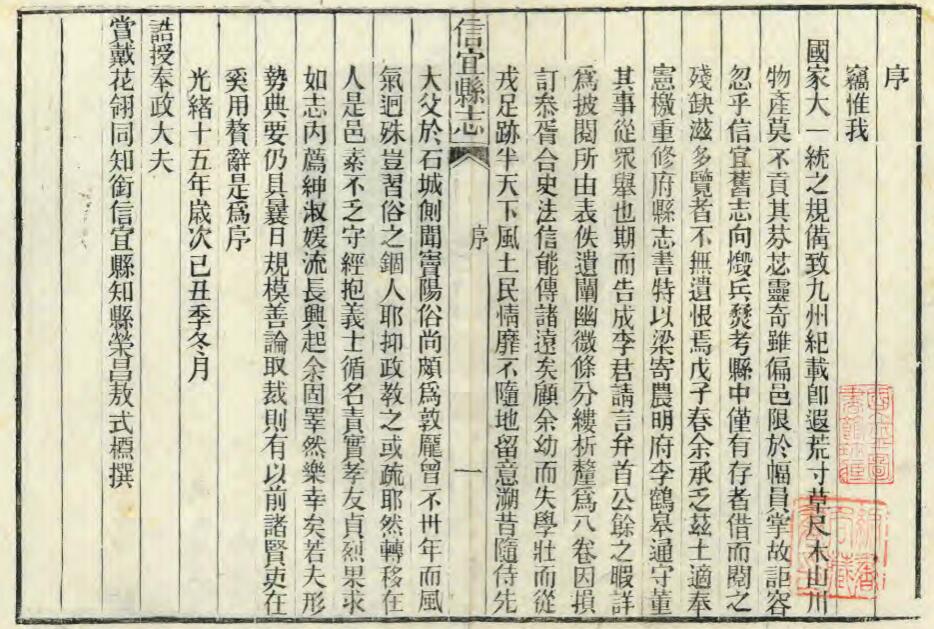 序
竊惟我
國家大一統之規備致九州紀載卽遐荒寸草尺木山川
物產莫不貢其芬苾靈奇雖偏邑限於幅員掌故詎容
忽乎信宜舊志向燬兵燹考縣中僅有存者借而閱之
殘缺滋多覽者不無遺恨焉戊子春余承乏茲土適奉
憲檄重修府縣志書特以梁寄農明府李鶴皋通守董
其事從眾舉也期而告成李君請言弁首公餘之暇詳
爲披閱所由表佚遺闡幽微條分縷析釐爲八卷因損
訂叅胥合史法信能傳諸遠矣顧余幼而失學壯而從
戎足跡半天下風土民情靡不隨地留意溯昔隨侍先
信宜縣志
序
一
大父於石城劊聞竇陽俗尚頗爲敦龐曾不卅年而風
氣迥殊豈習俗之錮人耶抑政教之或疏耶然轉移在
人是邑素不乏守經抱義士循名責實孝友貞烈果求
如志內薦紳淑媛流長興起余固睪然樂幸矣若夫形
勢典要仍具曩日規模善論取裁則有以前諸賢吏在
奚用贅辭是爲序
光緒十五年歲次己丑季冬月
誥授奉政大夫
賞戴花翎同知銜信宜縣知縣榮昌敖式槱撰